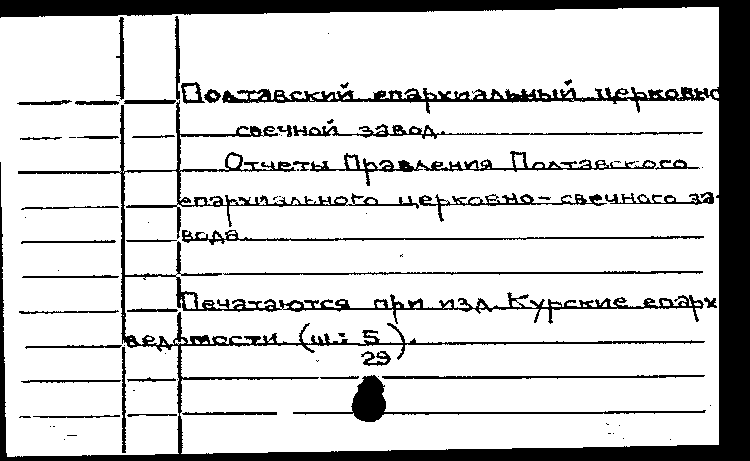 Полтавский епархиальный церковно
свечной завод.
Отчеты Правления Полтавского
епархиального церковно-свечного за-
вода.
Печатаются при изд. Курские епарх
ведомости (ш: 5
29).